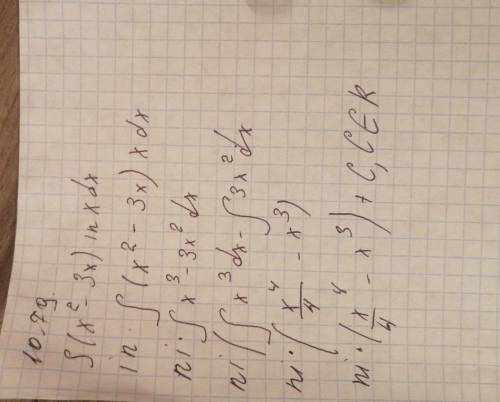 10.79.
∫(x²-3x) in x dx
in·∫(x²-3x) x dx
ni·∫x³-3x² dx
ni(∫x³dx-∫3x²dx
ni·(x⁴/4 - x³)
ni·(x⁴/4 - x³) + C, C∈R